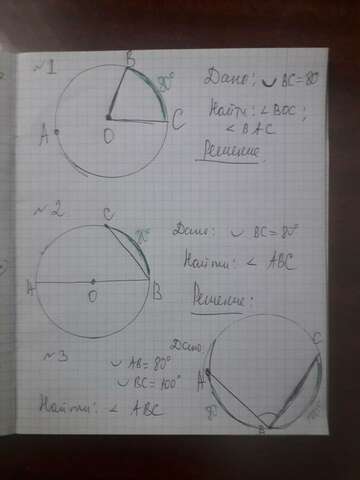 №1
B
80°
Дано: ◡ BC=80
A
O
C
Найти: ∠BOC;
∠BAC
Решение
№2
C
80°
Дано: ◡ BC=80°
Найти: ∠ ABC
A
O
B
Решение:
№3
Дано:
◡ AB=80°
◡ BC=100°
Найти: ∠ ABC
A
C
80
B